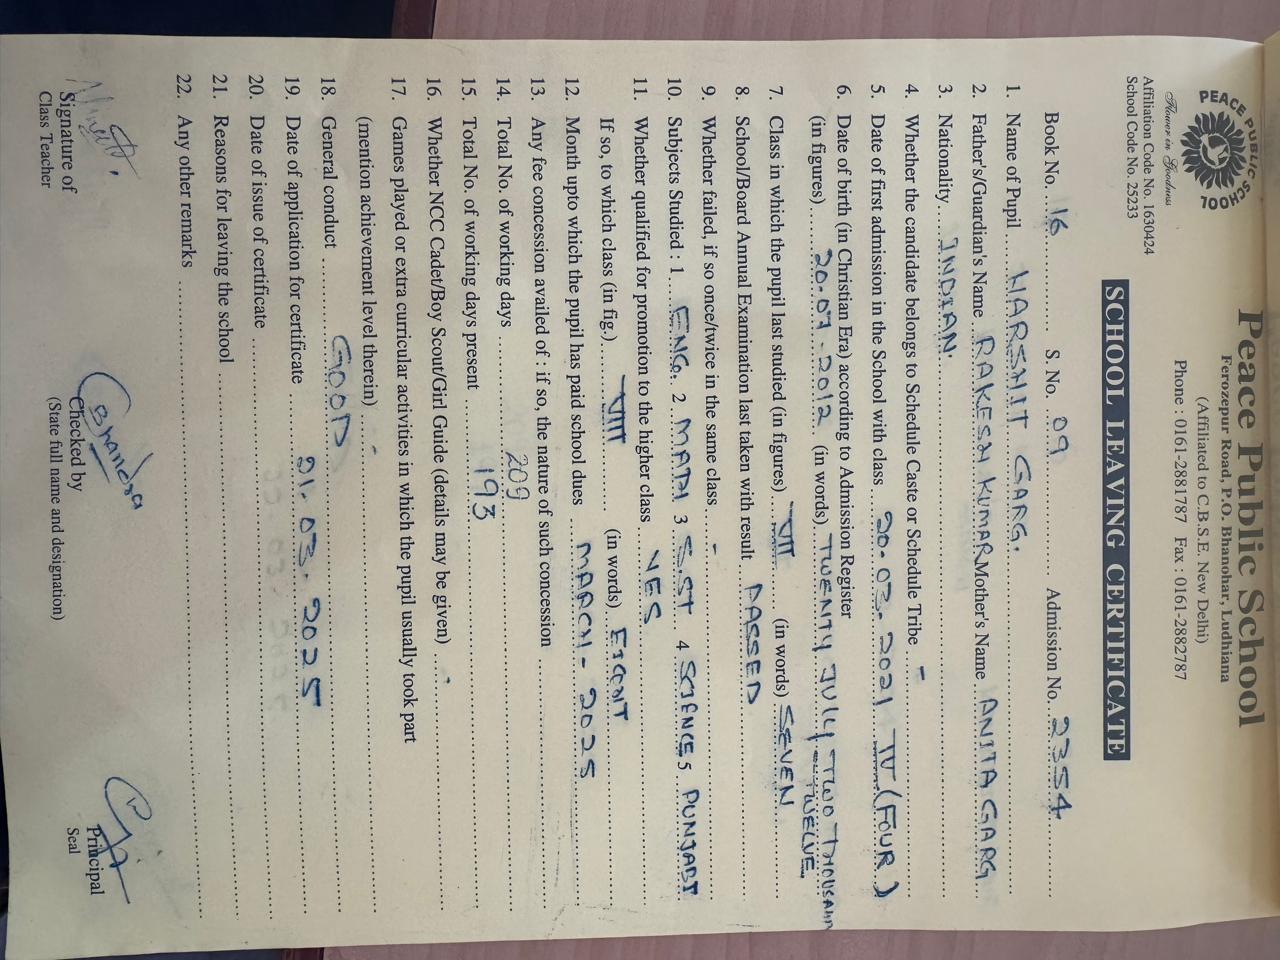 Peace Public School
Ferozepur Road, P.O. Bhanohar, Ludhiana
(Affiliated to C.B.S.E. New Delhi)
Phone : 0161-2881787 Fax : 0161-2882787
PEACE PUBLIC SCHOOL
Flower in Goodness
Affiliation Code No. 1630424
School Code No. 25233
SCHOOL LEAVING CERTIFICATE
Book No. 16 S. No. 09 Admission No. 2354
1. Name of Pupil HARSHIT GARG.
2. Father's/Guardian's Name RAKESH KUMAR Mother's Name ANITA GARG
3. Nationality INDIAN.
4. Whether the candidate belongs to Schedule Caste or Schedule Tribe -
5. Date of first admission in the School with class 20.03.2021 IV (FOUR)
6. Date of birth (in Christian Era) according to Admission Register
(in figures) 20-07-2012 (in words) TWENTY JULY TWO THOUSAND
TWELVE
7. Class in which the pupil last studied (in figures) VII (in words) SEVEN
8. School/Board Annual Examination last taken with result PASSED
9. Whether failed, if so once/twice in the same class -
10. Subjects Studied : 1 ENG. 2 MATH 3 S.ST 4 SCIENCE 5 PUNJABI
11. Whether qualified for promotion to the higher class YES
If so, to which class (in fig.) VIII (in words) EIGHT
12. Month upto which the pupil has paid school dues MARCH - 2025
13. Any fee concession availed of : if so, the nature of such concession
14. Total No. of working days 209
15. Total No. of working days present 193
16. Whether NCC Cadet/Boy Scout/Girl Guide (details may be given) -
17. Games played or extra curricular activities in which the pupil usually took part
(mention achievement level therein) -
18. General conduct GOOD
19. Date of application for certificate 21.03.2025
20. Date of issue of certificate
21. Reasons for leaving the school
22. Any other remarks
Signature of
Class Teacher
Checked by
(State full name and designation)
Principal
Seal